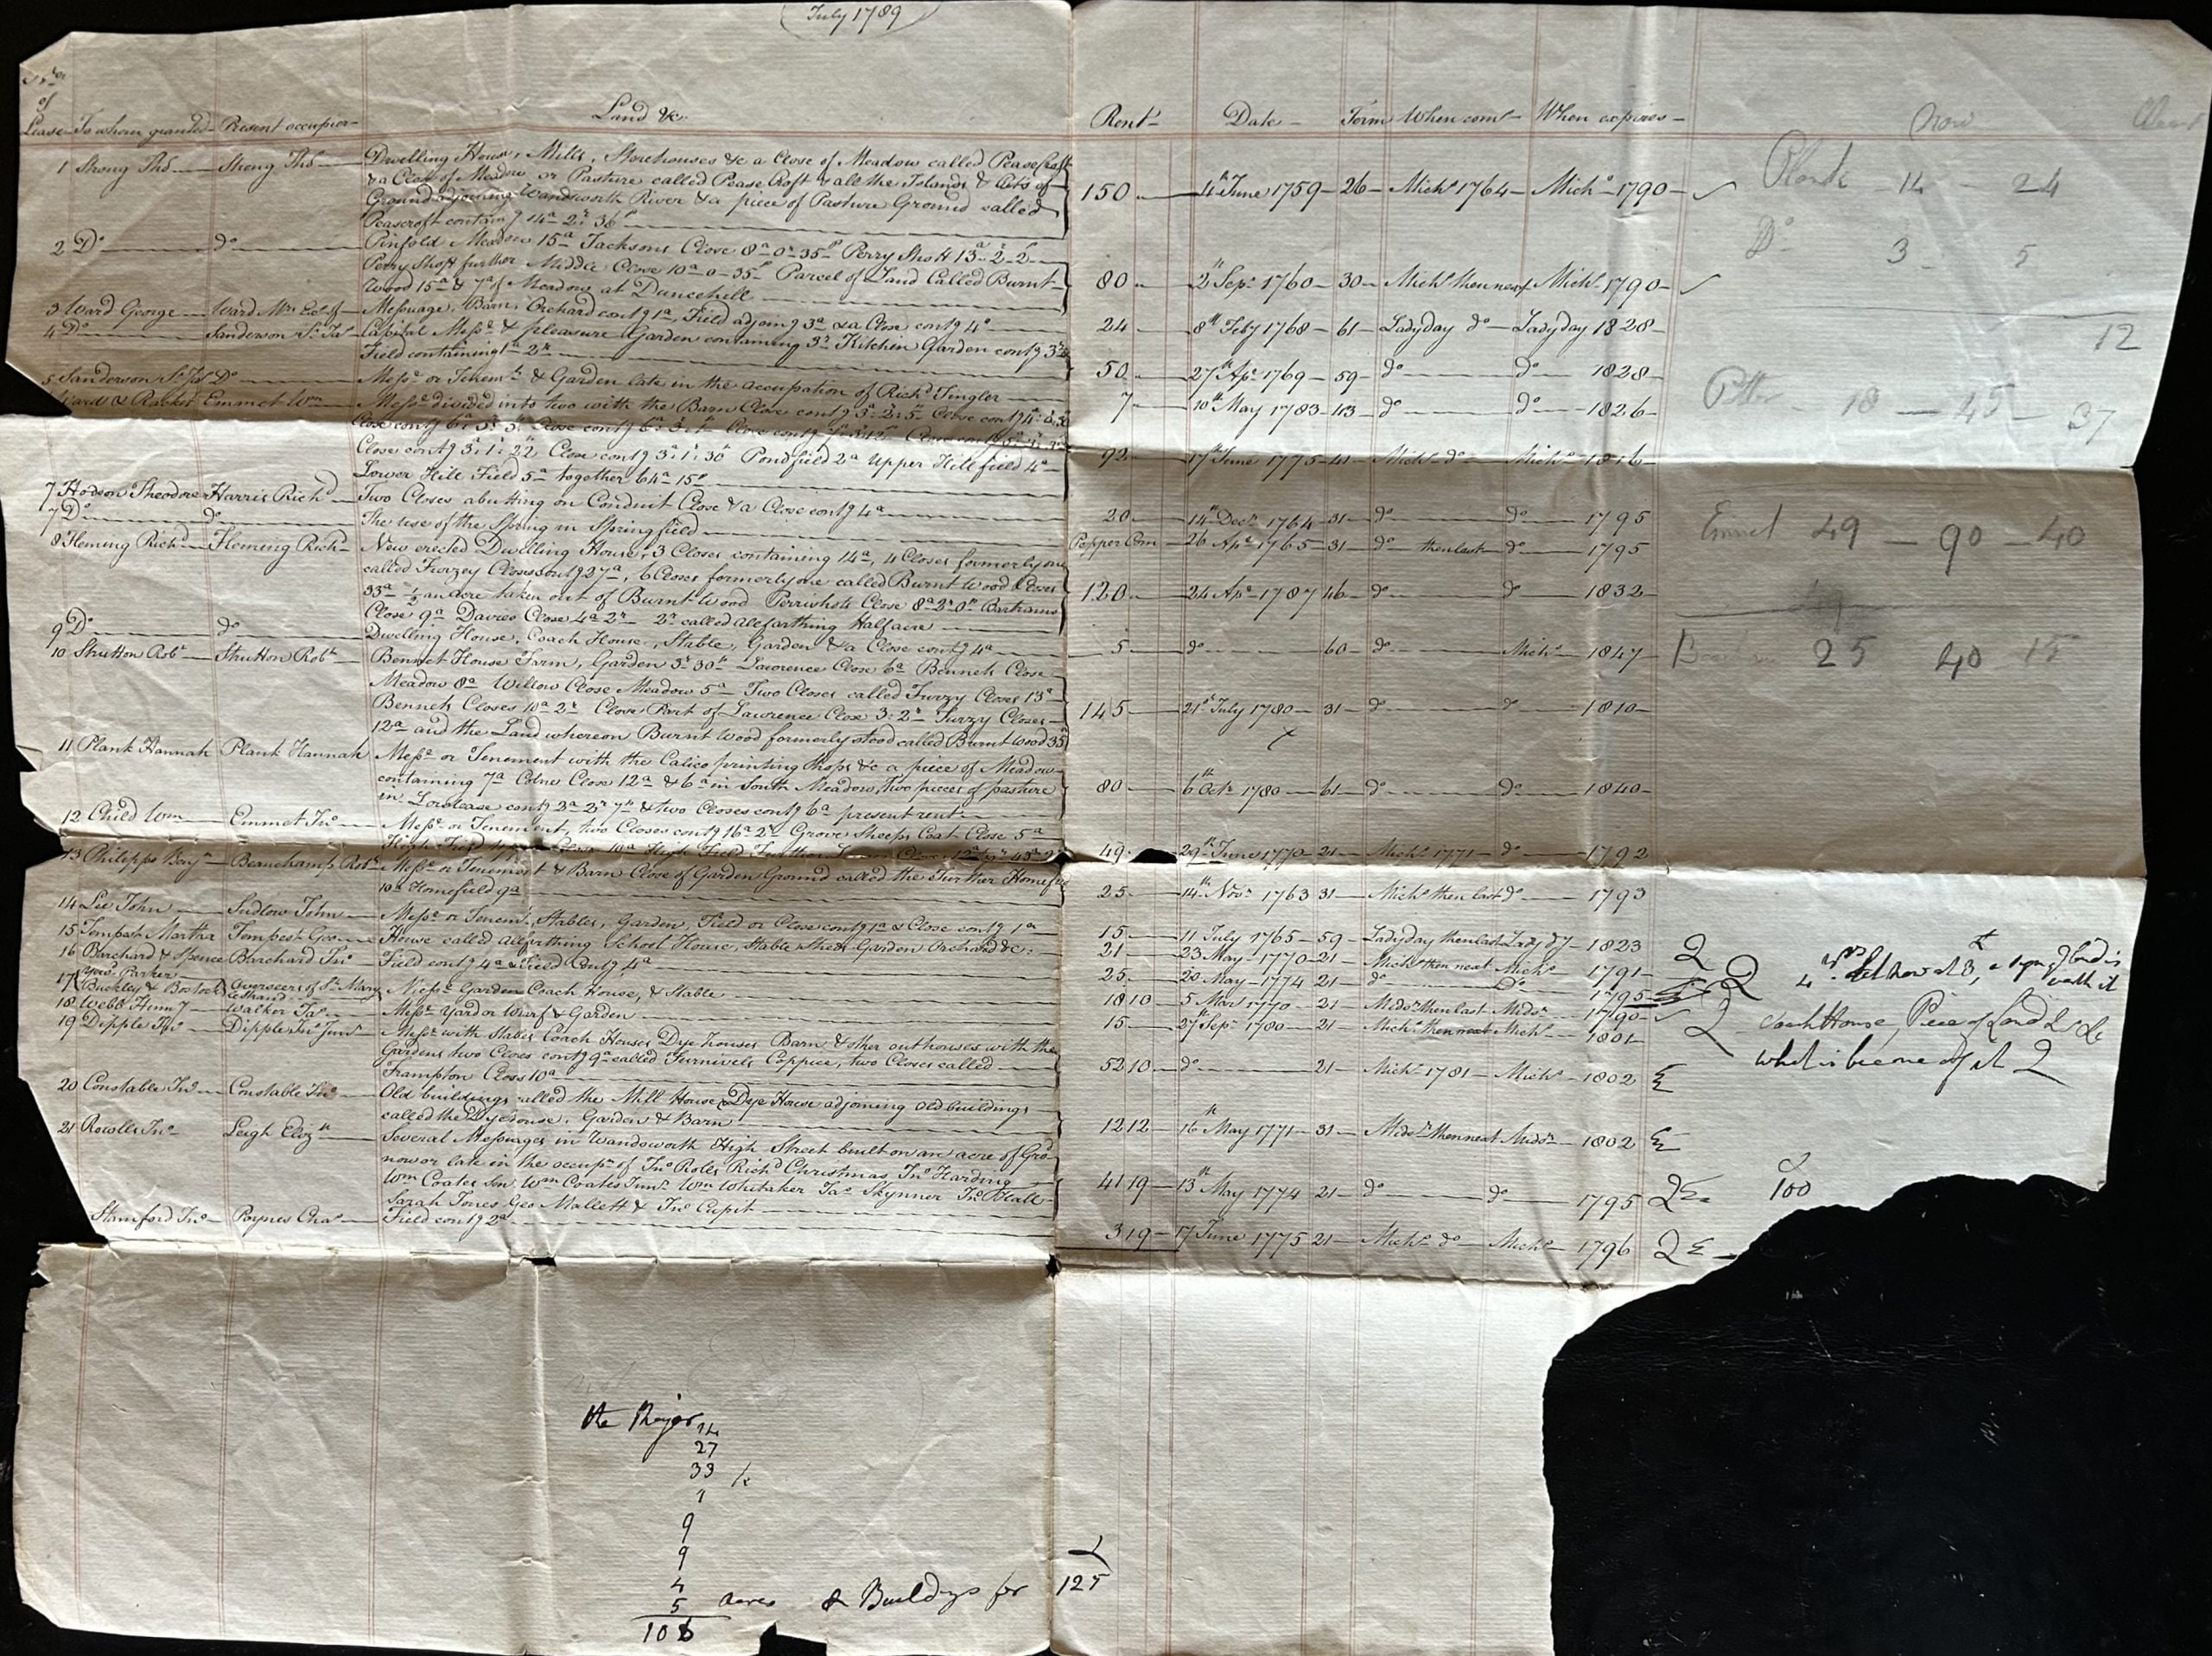 (July 1789)
No of Lease To whom granted Present occupier Land &c. Rent Date Term When comce When expires
Now
1 Strong Thos Strong Thos Dwelling House, Mills, Storehouses &c a Close of Meadow called Peasecroft
& a Close of Meadow or Pasture called Pease Croft & all the Islands & Aits of
Ground adjoining Wandsworth River & a piece of Pasture Ground called
Peascroft containg 14a 2r 36p 150 4th June 1759 26 Michs 1764 Michs 1790
Plank 14 24
2 Do do Pinfold Meadow 15a Jacksons Close 8a 0r 35p Perry Shott 13a 2 2
Perry Shott further Middle Close 10a 0 35p Parcel of Land Called Burnt
Wood 15a & 7a of Meadow at Duncehill 80 2d Sepr 1760 30 Michs then next Michs 1790
Do 3 5
12
3 Ward George Ward Messuage, Barn, Orchard contg 1a, Field adjoing 3a & a Close contg 4a 24 8th Feby 1768 61 Ladyday do Ladyday 1828
4 Do Sanderson Sr Jas Capital Messe & pleasure Garden containing 3r Kitchin Garden contg 3r
Field containing 1a 2r 50 27th Apl 1769 59 do do 1828
5 Sanderson Sr Jas Do Messe or Tenemt & Garden late in the occupation of Richd Tingler 7 10th May 1783 43 do do 1826
18 45 37
Ward & Racket Emmet Wm Messe divided into two with the Barn Close contg 3a 2r 5
Close contg 3: 1: 22 Close contg 3: 1: 30 Pondfield 2a Upper Hill field 4a
Lower Hill Field 5a together 64a 15p 92 17th June 1775 41 Michs do Michs 1816
7 Hodson Theodore Harris Richd Two Closes abutting on Conduit Close & a Close contg 4a 20 14th Decr 1764 31 do do 1795
7 Do do The use of the Spring in Springfield Pepper Corn 26 Apl 1765 31 do then last do 1795
Emmet 49 90 40
8 Fleming Richd Fleming Richd New erected Dwelling House, 3 Closes containing 14a, 4 Closes formerly one
called Furzey Close contg 27a, 6 Closes formerly one called Burnt Wood Closes
33a 1/2 an acre taken out of Burnt Wood Perrishots Close 8a 2r 0p Bartrams
Close 9a Davies Close 4a 2r 2r called Allfarthing Half acre 120 24 Apl 1787 46 do do 1832
9 Do do Dwelling House, Coach House, Stable, Garden & a Close contg 4a 5 do 60 do Michs 1847
25 40 15
10 Strutton Robt Strutton Robt Bennet House Farm, Garden 3r 30p Lawrence Close 6a Bennets Close
Meadow 8a Willow Close Meadow 5a Two Closes called Furzy Closes 13a
Bennets Closes 10a 2r Close Part of Lawrence Close 3: 2r Furzy Closes
12a and the Land whereon Burnt Wood formerly stood called Burnt Wood 35a 145 21st July 1780 31 do do 1810
11 Plank Hannah Plank Hannah Messe or Tenement with the Calico printing Shops &c a piece of Meadow
containing 7a Colne Close 12a & 6a in South Meadow, two pieces of pasture
in Lowlease contg 3a 2r 7p & two Closes contg 6a present rent 80 6th Octr 1780 61 do do 1840
12 Child Wm Emmet Jno Messe or Tenement, two Closes contg 16a 2r Grove Sheeps Coat Close 5a
49 29th June 1770 21 Michs 1771 do 1792
13 Philipps Benjn Beauchamp Robt Messe or Tenement & Barn Close of Garden Ground called the Further Homefield
10a Homefield 9a 25 14th Novr 1763 31 Michs then last do 1793
14 Lee John Sudlow John Messe or Tenemt, Stables, Garden, Field or Close contg 1a & Close contg 1a 15 11 July 1765 59 Ladyday then last Lady dy 1823
15 Tempest Martha Tempest Geo House called Allfarthing School House, Stable Shed Garden Orchard &c. 21 23 May 1770 21 Michs then next Michs 1791
16 Barchard & Spence Barchard Jno Field contg 4a & Field contg 4a 25 20 May 1774 21 do Do 1795
17 Yow. Parker Buckley & Bostock Overseers of St Mary Messe Garden Coach House, & Stable 18 10 5 Mar 1770 21 Midsr then last Midsr 1790
18 Webb Henry Walker Jas Messe Yard or Wharf & Garden 15 27th Sepr 1780 21 Michs then next Michs 1801
Coach House, Piece of Land
what is become of it
19 Dipple Jno Dipple Jno Junr Messe with Stables Coach Houses Dye houses Barn & other outhouses with the
Gardens two Closes contg 9a called Furnivels Coppice, two Closes called
Frampton Closs 10a 52 10 do 21 Michs 1781 Michs 1802
20 Constable Jno Constable Jno Old buildings called the Mill House, Dye House adjoining old buildings
called the Dyehouse, Garden & Barn 12 12 16th May 1771 31 Midsr then next Midsr 1802
21 Rowlls Jno Leigh Elizth Several Messuages in Wandsworth High Street built on an acre of Grod
now or late in the occupn of Jno Roles Richd Christmas Jno Harding
Wm Coates Senr Wm Coates Junr Wm Whitaker Jas Skynner Jno Hall
Sarah Jones Geo Mallett & Jno Cupit 41 19 13th May 1774 21 do do 1795
100
Stamford Jno Poynes Chas Field contg 2a 3 19 17 June 1775 21 Michs do Michs 1796
the Major
14
27
33 1/2
9
9
4
5 acres & Buildings for 125
106